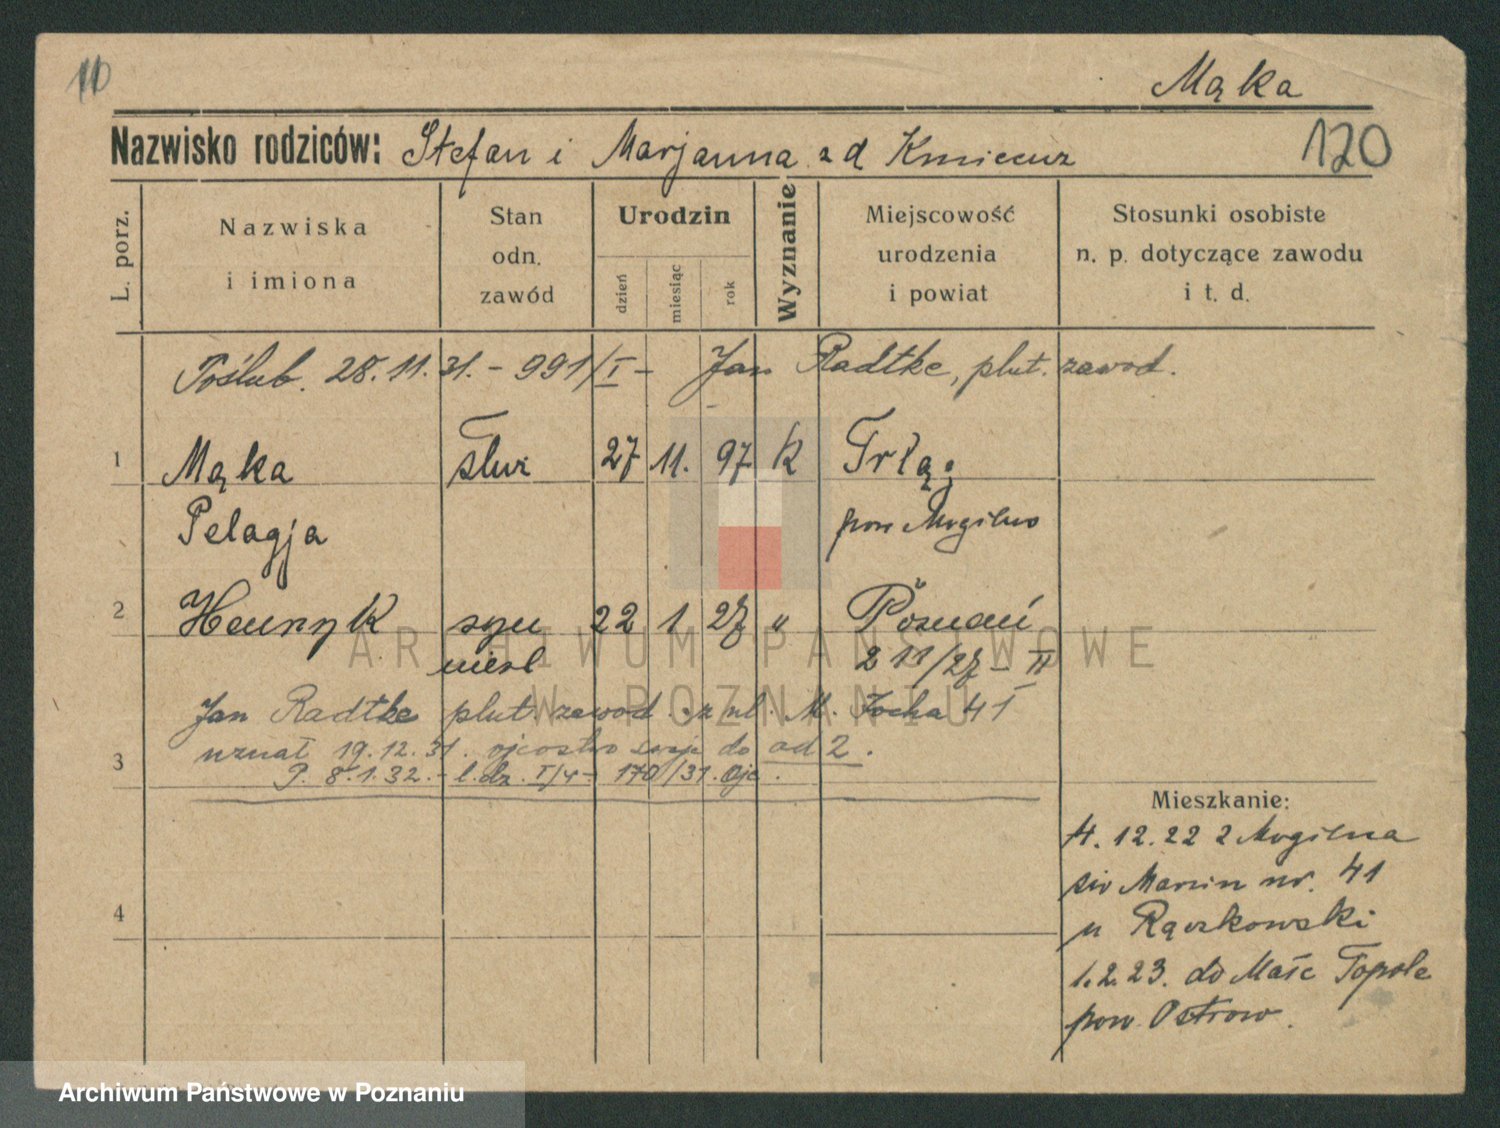 10
Mąka
Nazwisko rodziców: Stefan i Marjanna z d Kmiecuz
120
L. porz.
Nazwiska
i imiona
Stan
odn.
zawód
Urodzin
dzień
miesiąc
rok
Wyznanie
Miejscowość
urodzenia
i powiat
Stosunki osobiste
n. p. dotyczące zawodu
i t. d.
Poślub. 28.11.31. - 991/I - Jan Radtke, plut. zawod.
1 Mąka służ 27 11. 97 k Trląg
Pelagja pow Mogilno
2 Henryk syn 22 1 27 " Poznań
nieśl 211/27 - II
Jan Radtke plut. zawod. z ul. M. Focha 41
uznał 19.12.31. ojcostwo swoje do ad 2.
3 P. 8.1.32. - l. dz. I/4 - 170/31. Ojc.
Mieszkanie:
4. 12. 22 z Mogilna
św Marcin nr. 41
4
u Rączkowski
1.2.23. do Małe Topole
pow. Ostrow.
ARCHIWUM PAŃSTWOWE
W POZNANIU
Archiwum Państwowe w Poznaniu